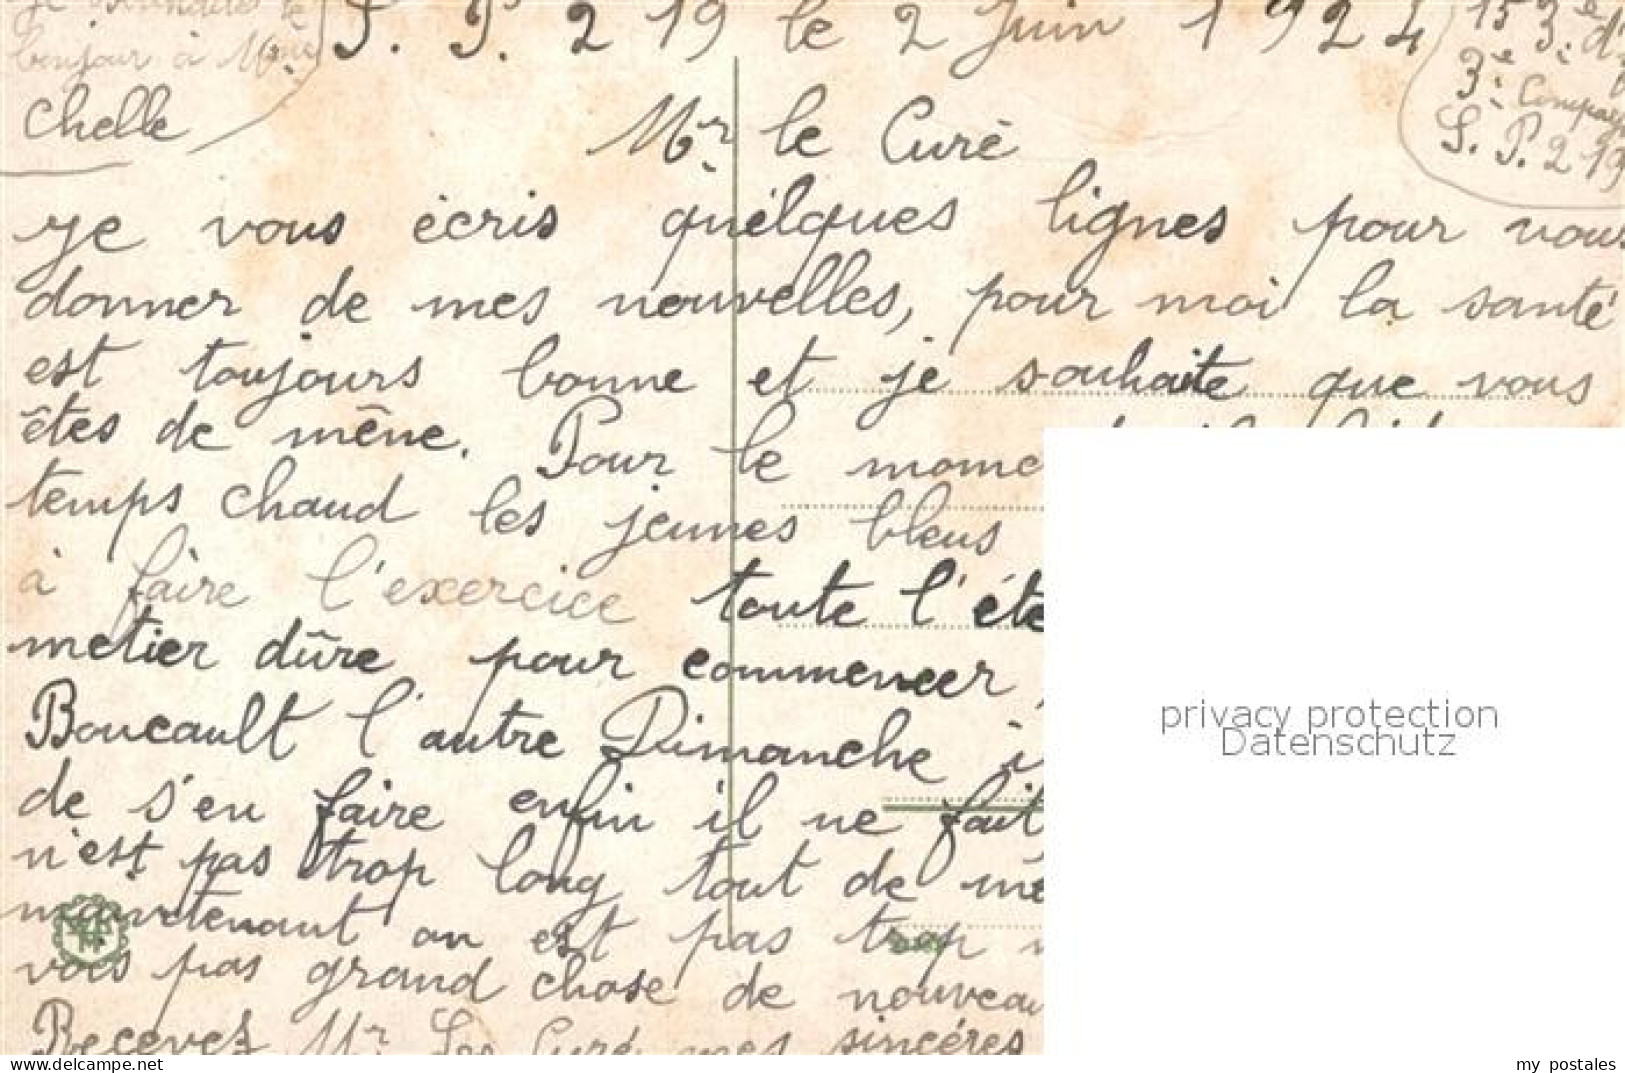 bonjour à Mme
chelle
S. P. 219 le 2 Juin 1924
153e d'
3e Compag
S. P. 219
Mr le Curé
Je vous écris quélques lignes pour vous
donner de mes nouvelles, pour moi la santé
est toujours bonne et je souhaite que vous
êtes de mêne. Pour le mome
temps chaud les jeunes bleus
à faire l'exercice toute l'éte
metier dûre pour commencer,
Boucault l'autre Dimanche i
de s'en faire enfin il ne fait
n'est pas trop long tout de mê
maintenant on est pas trop
vois pas grand chose de nouveau
Recevez Mr Le Curé mes sincéres
privacy protection
Datenschutz
my postales